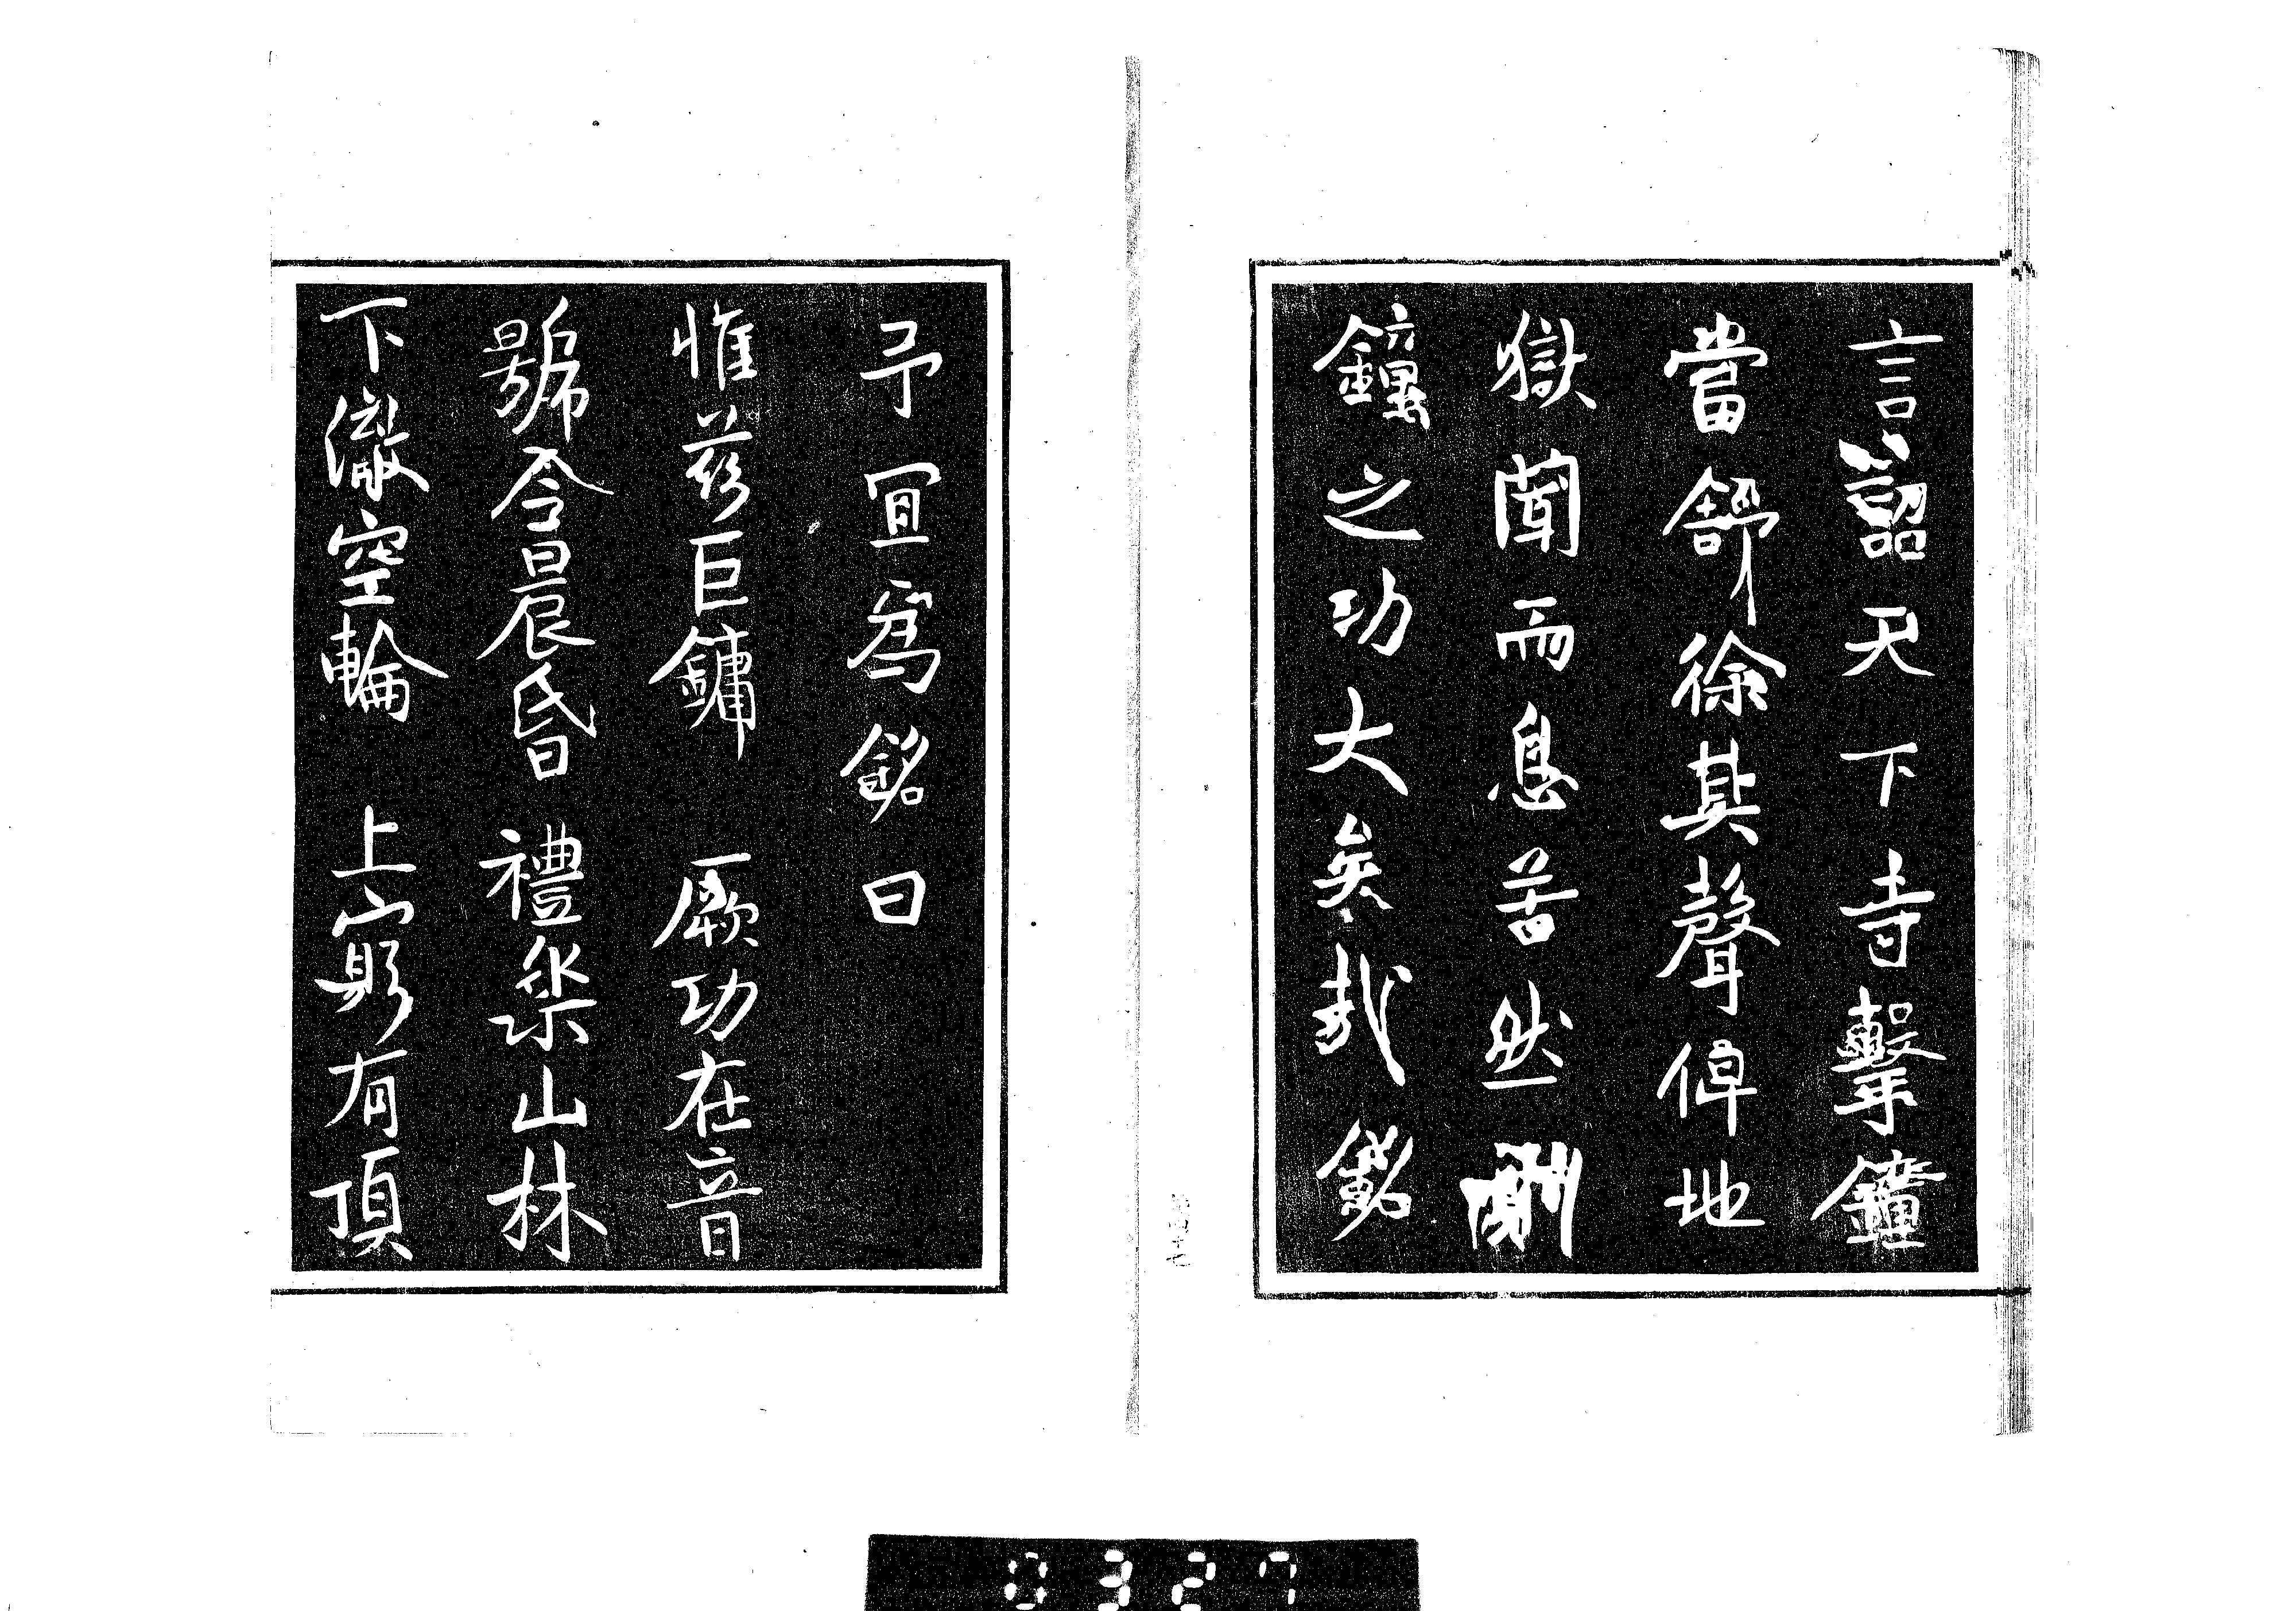 言詔天下寺擊鐘
當舒徐其聲俾地
獄聞而息苦然則
鐘之功大矣哉銘
予宜爲銘曰
惟茲巨鏞 厥功在音
號令晨昏 禮樂山林
下澈空輪 上窮有頂
0327